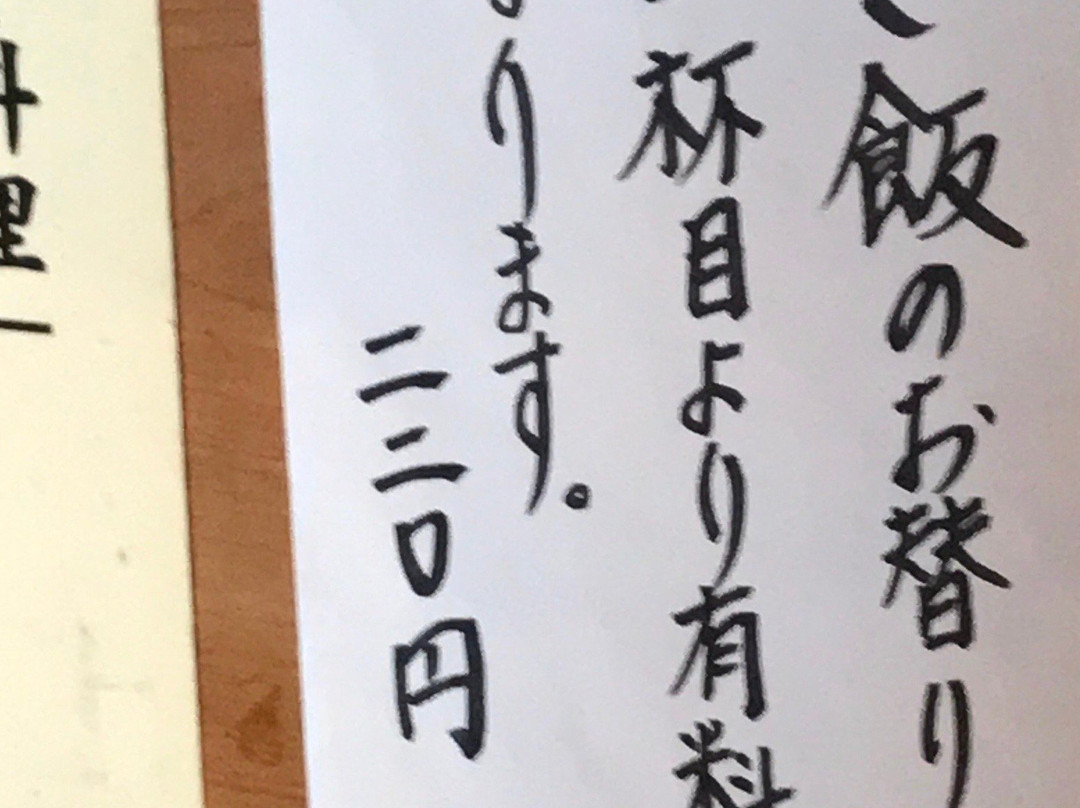 飯のお替り
杯目より有料
ります。
二二〇円
料理